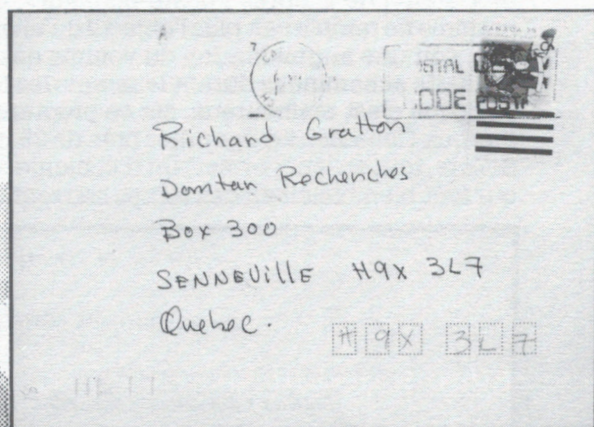 STAL
CODE POSTAL
Richard Gratton
Domtar Recherches
Box 300
SENNEVILLE H9X 3L7
Quebec.
H9X 3L7